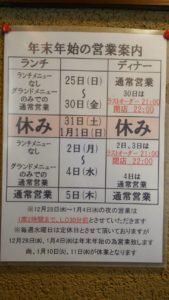 年末年始の営業案内
ランチ
ディナー
ランチメニュー
なし
グランドメニュー
のみでの
通常営業
25日(日)
～
30日(金)
通常営業
30日は
ラストオーダー 21:00
閉店 22:00
休み
31日(土)
1月1日(日)
休み
ランチメニュー
なし
グランドメニュー
のみでの
通常営業
2日(月)
～
4日(水)
2日、3日は
ラストオーダー 21:00
閉店 22:00
4日は
通常営業
通常営業
5日(木)
通常営業
※12月28日㈬～1月4日㈬の夜の営業は
1席2時間まで、L.O30分前とさせていただきます
※毎週水曜日は定休日とさせて頂いておりますが
12月28日㈬、1月4日㈬は年末年始の為営業致します
尚、1月10日㈫、11日㈬が休業となります